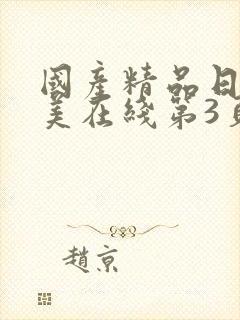 國產精品日
美在綫第3頁
趙京